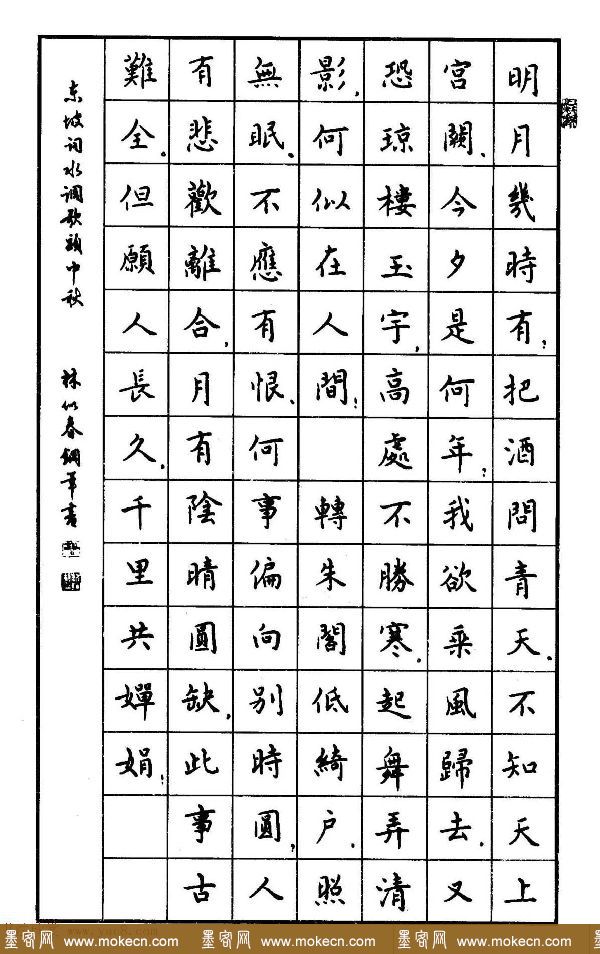 明月幾時有,把酒問青天.不知天上
宮闕、今夕是何年;我欲乘風歸去.又
恐琼樓玉宇,高處不勝寒.起舞弄清
影,何似在人間;轉朱閣低綺户、照
無眠、不應有恨、何事偏向别時圓;人
有悲歡離合,月有陰晴圓缺,此事古
難全.但願人長久.千里共嬋娟;
东坡词水调歌頭中秋 林似春鋼筆書
墨客网 www.mokecn.com 墨客网 www.mokecn.com 墨客网 www.mokecn.com